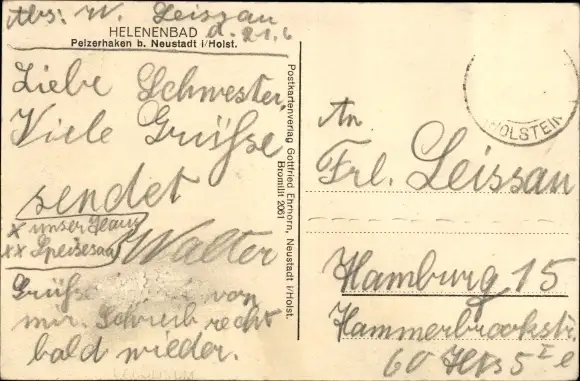 Abs: W. Leissau
d. 21.6
HELENENBAD
Pelzerhaken b. Neustadt i/Holst.
Liebe Schwester,
Viele Grüße
sendet
Walter
x unser Haus
xx Speisesaal
Grüße von
mir. Schreib recht
bald wieder.
Postkartenverlag Gottfried Ehrhorn, Neustadt i/Holst.
Bromilit 2061
HOLSTEIN
An
Frl. Leissau
Hamburg 15
Hammerbrookstr.
60 Hs 5 E